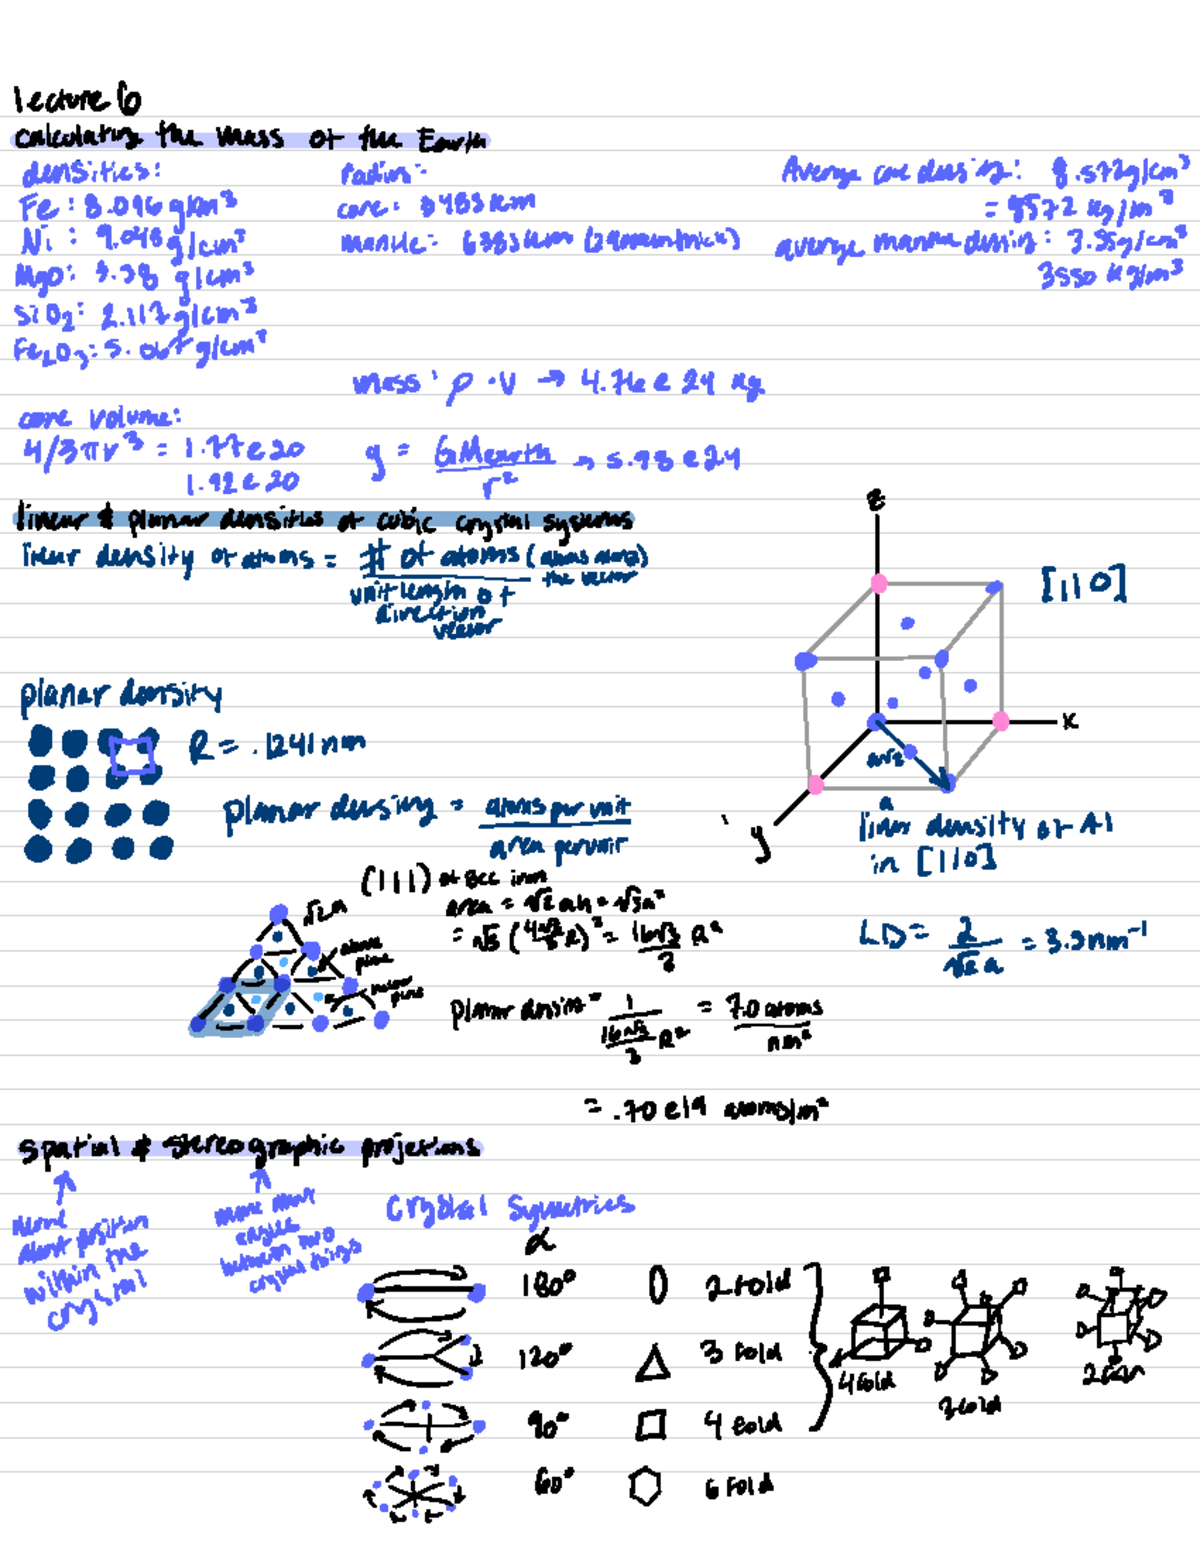 lecture 6
calculating the mass of the Earth
densities:
Fe: 8.096 g/cm³
Ni: 9.048 g/cm³
MgO: 3.38 g/cm³
SiO₂: 2.117 g/cm³
Fe₂O₃: 5.067 g/cm³
radius:
core: 3483 km
mantle: 6383 km
Average core density: 8.572 g/cm³
= 8572 kg/m³
average mantle density: 3.55 g/cm³
3550 kg/m³
mass: ρ · V → 4.76 e 24 kg
core volume:
4/3 πr³ = 1.77e20
1.92e20
g = GMearth / r² → 5.98 e24
linear & planar densities of cubic crystal systems
linear density of atoms = # of atoms (atoms along the vector) / unit length of direction vector
z
[110]
x
y
a√2
a
linear density of Al
in [110]
LD = 2 / √2 a = 3.5nm⁻¹
planar density
R = .1241 nm
planar density = atoms per unit / area per unit
(111) of BCC iron
area = √2 ah = √3a²
= √3 (4√3/3 R)² = 16√3/3 R²
√2a
above plane
below plane
planar density = 1 / 16√3/3 R² = 7.0 atoms / nm²
= .70 e19 atoms/m²
spatial & stereographic projections
more about position within the crystal
more about angles between two crystal things
Crystal Symmetries
α
180° 2 fold
120° 3 fold
90° 4 fold
60° 6 fold
4 fold
3 fold
2 fold